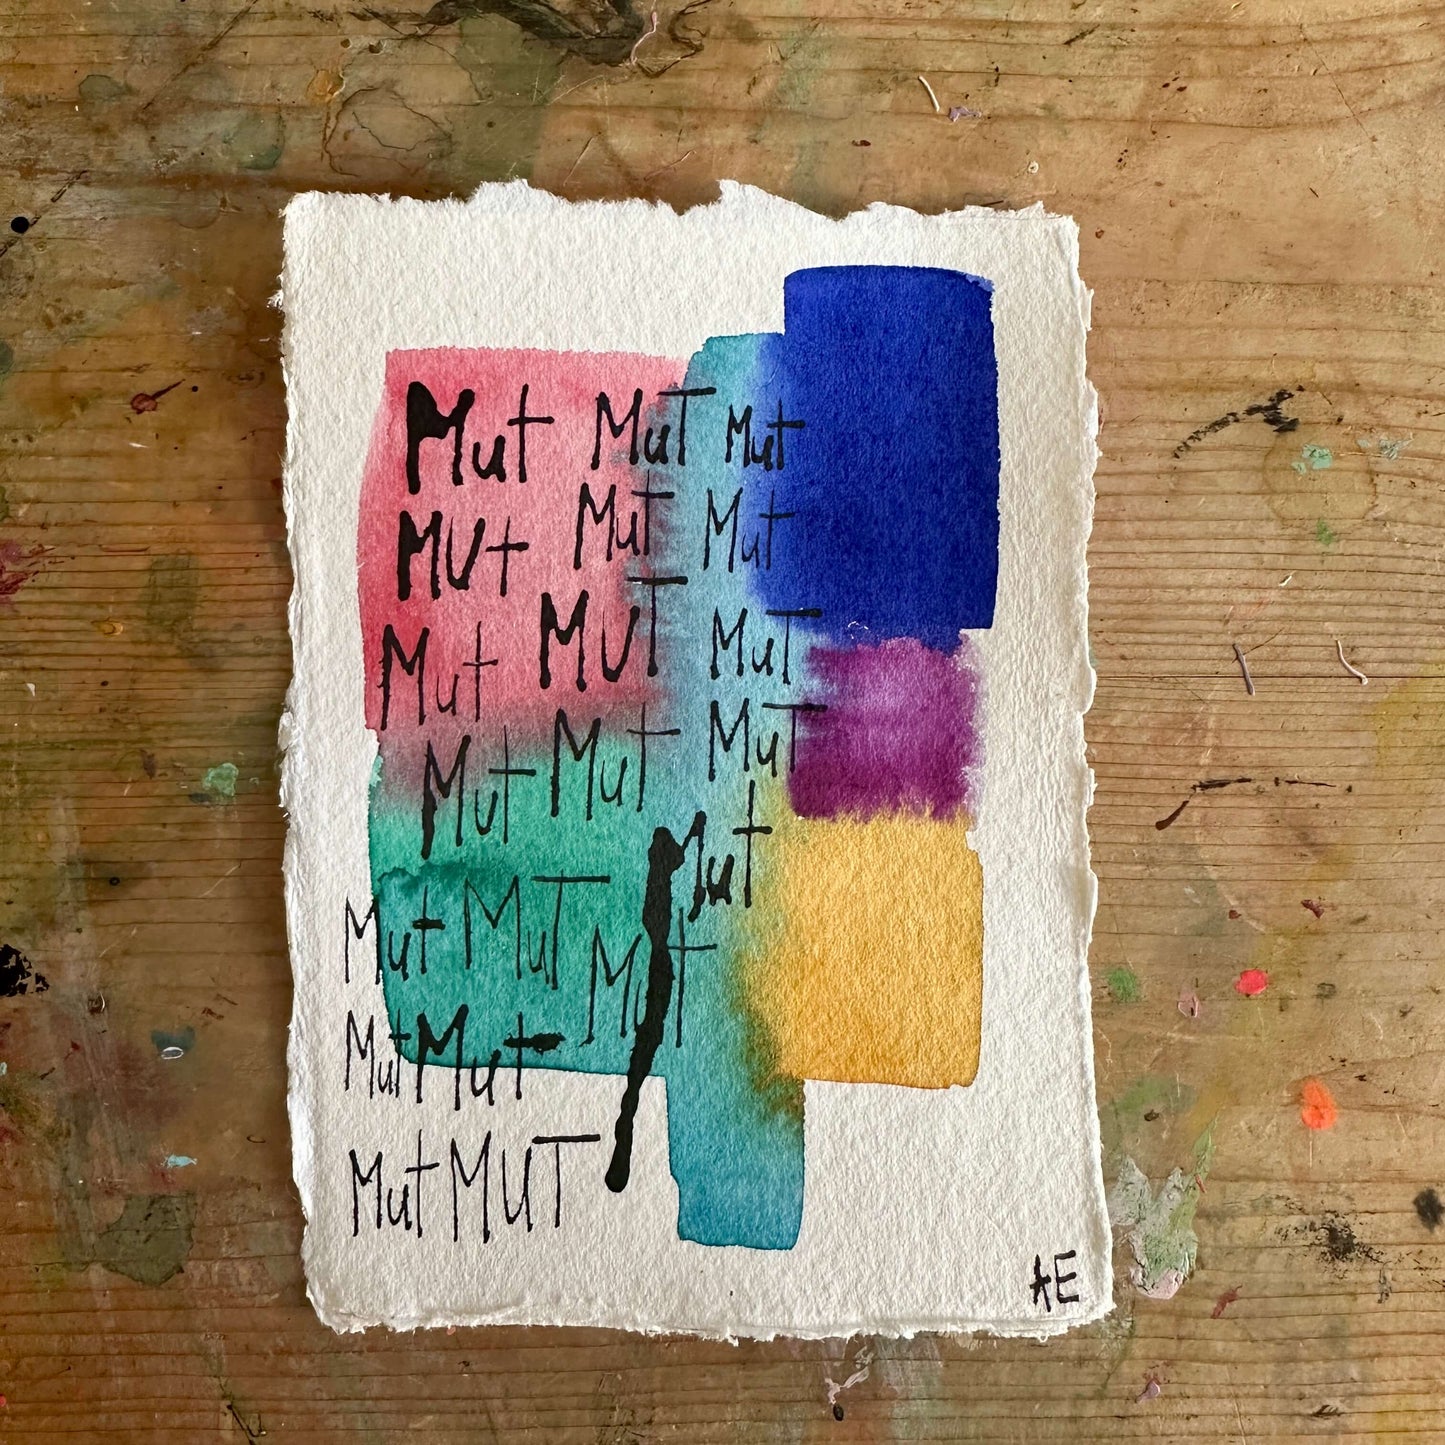 Mut MuT Mut
MUt MuT Mut
Mut MUT MuT
Mut Mut MuT
Mut
Mut MuT Mut
Mut Mut
Mut MUT
AE